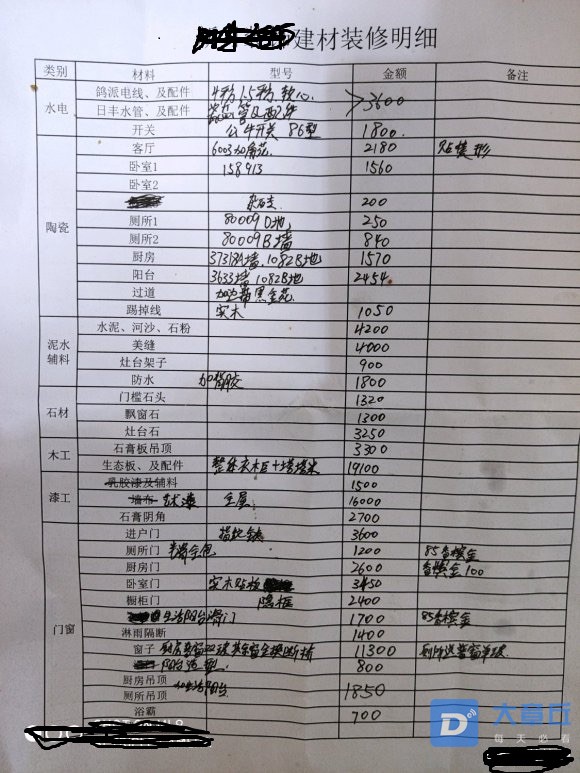 建材装修明细
类别 材料 型号 金额 备注
水电 鸽派电线、及配件 4粉 1.5粉 软心 >3600
日丰水管、及配件 管及配件
开关 公牛开关 86型 1800
陶瓷 客厅 6003加角花 2180
卧室1 158913 1560
卧室2
200
厕所1 80009D地 250
厕所2 80009B墙 840
厨房 37318A墙 1082B地 1570
阳台 3633墙 1082B地 2454
过道 加边带黑金花
踢掉线 实木 1050
泥水辅料 水泥、河沙、石粉 4200
美缝 4000
灶台架子 900
防水 加背胶 1800
石材 门槛石头 1320
飘窗石 1300
灶台石 3250
木工 石膏板吊顶 3300
生态板、及配件 19100
漆工 乳胶漆及辅料 1500
墙布 艺术漆 全屋 16000
石膏阴角 2700
门窗 进户门 3600
厕所门 1200 85香槟金
厨房门 2600 香槟金100
卧室门 实木贴板 3450
橱柜门 隐框 2400
生活阳台滑门 1700 85香槟金
淋雨隔断 1400
窗子 11300
800
厨房吊顶 生活阳台 1850
厕所吊顶
浴霸 700
大章丘
每天必看